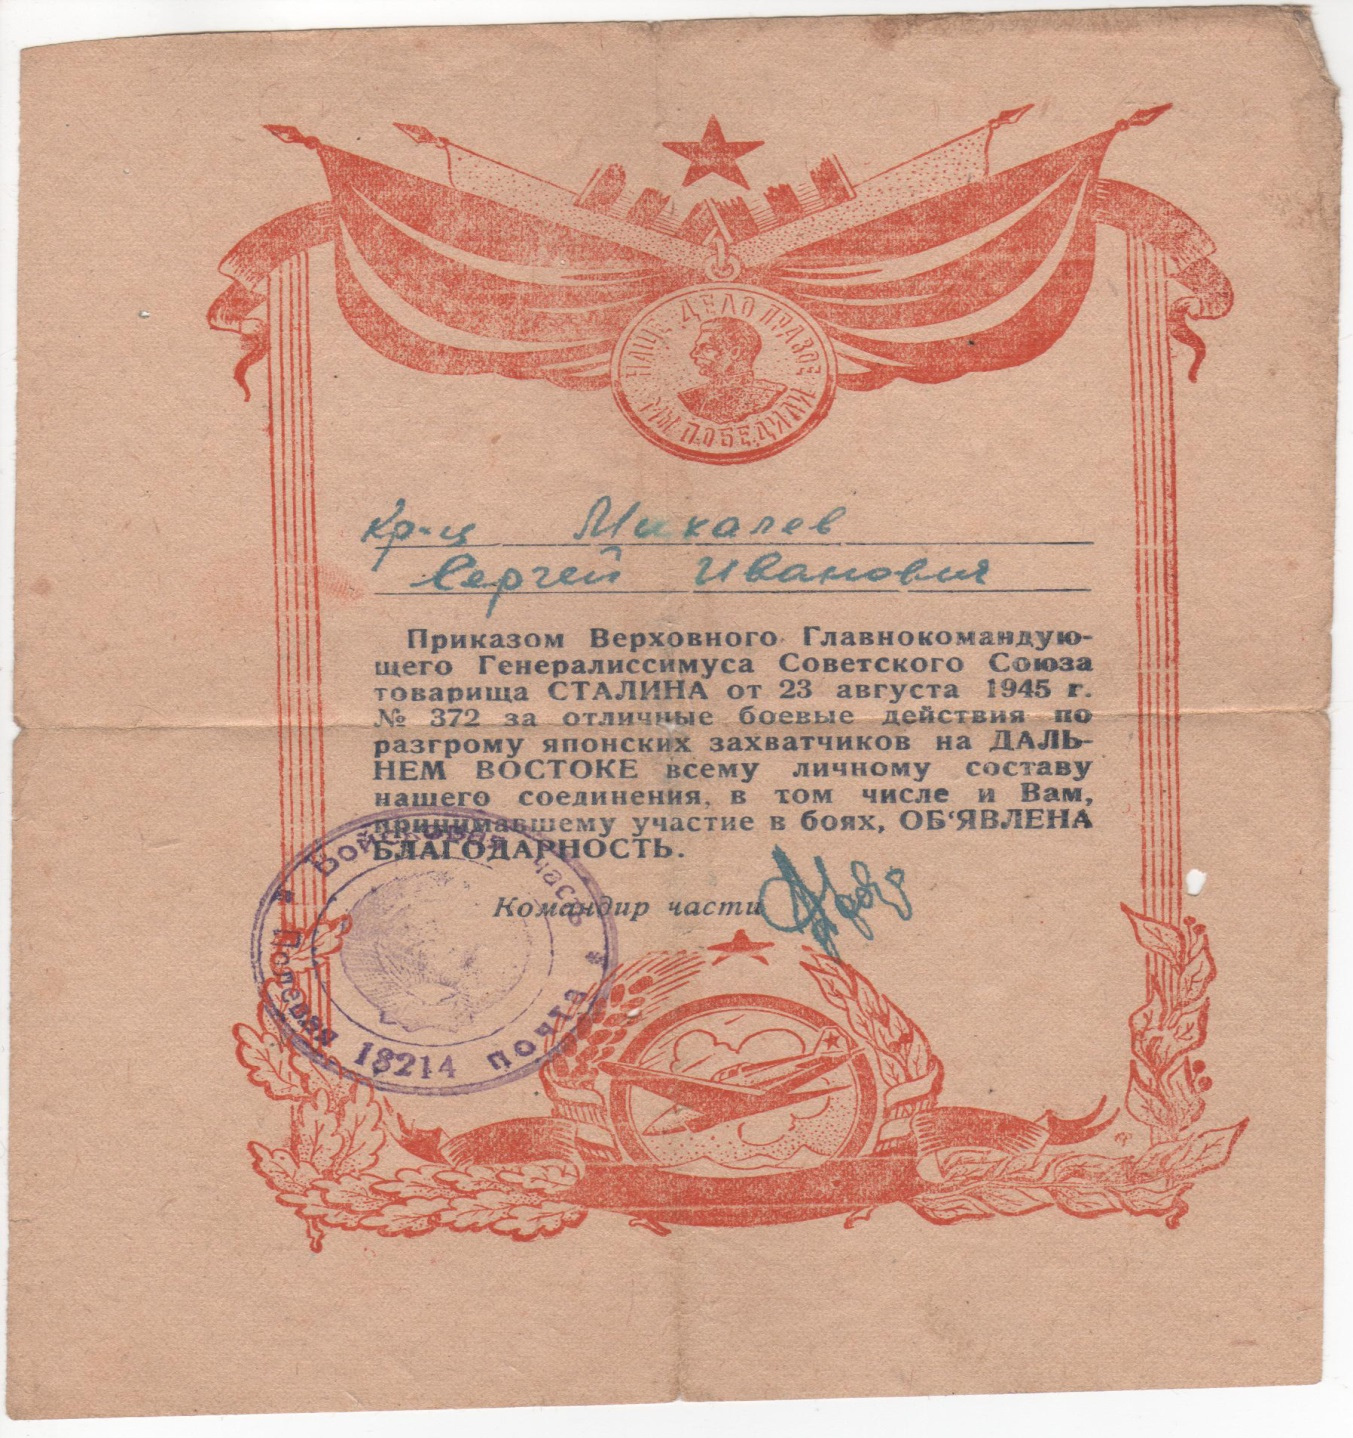 НАШЕ ДЕЛО ПРАВОЕ
МЫ ПОБЕДИЛИ
Кр-ц Михалев
Сергей Иванович
Приказом Верховного Главнокомандую-
щего Генералиссимуса Советского Союза
товарища СТАЛИНА от 23 августа 1945 г.
№ 372 за отличные боевые действия по
разгрому японских захватчиков на ДАЛЬ-
НЕМ ВОСТОКЕ всему личному составу
нашего соединения, в том числе и Вам,
принимавшему участие в боях, ОБ‘ЯВЛЕНА
БЛАГОДАРНОСТЬ.
Командир части
Войсковая часть
Полевая почта
18214